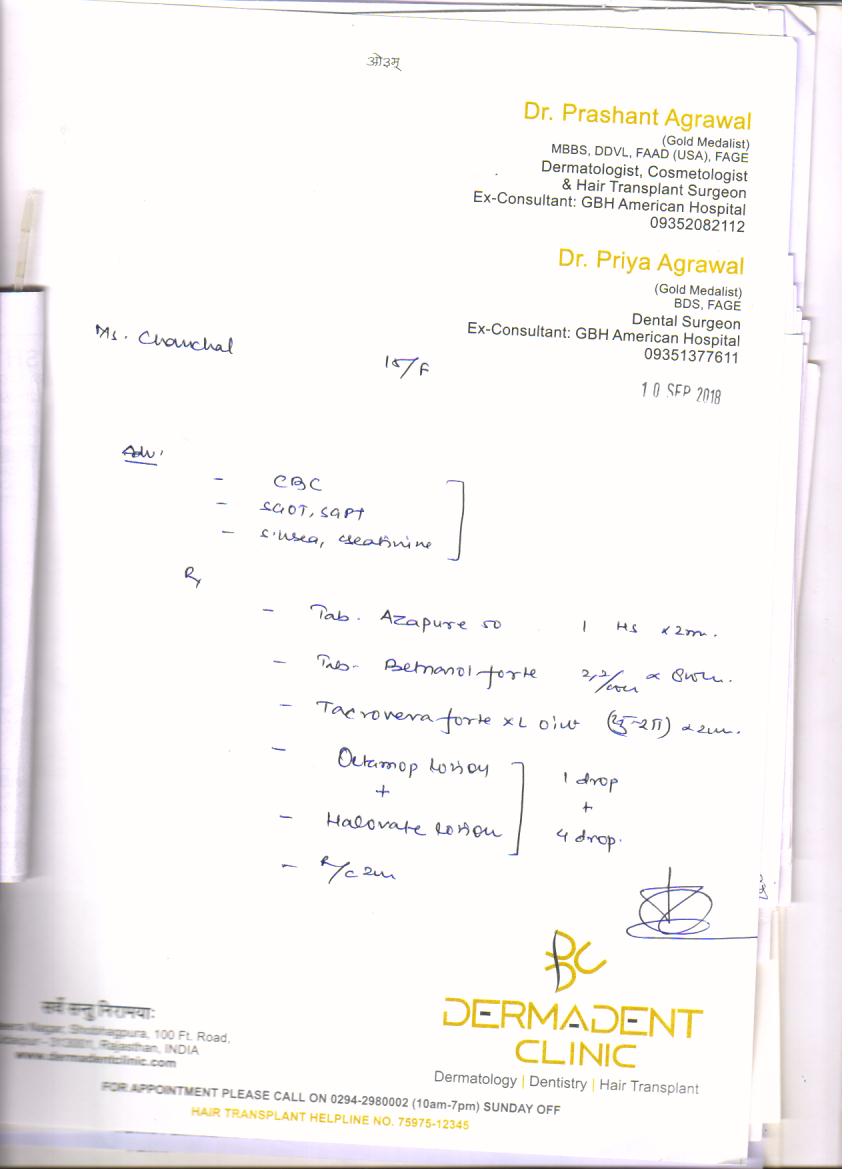 ओ३म्
Dr. Prashant Agrawal
(Gold Medalist)
MBBS, DDVL, FAAD (USA), FAGE
Dermatologist, Cosmetologist
& Hair Transplant Surgeon
Ex-Consultant: GBH American Hospital
09352082112
Dr. Priya Agrawal
(Gold Medalist)
BDS, FAGE
Dental Surgeon
Ex-Consultant: GBH American Hospital
09351377611
Ms. Chanchal
15/F
10 SEP 2018
Adv.
- CBC
- SGOT, SGPT
- S. urea, creatinine
Rx
- Tab. Azapure 50 1 HS x 2m.
- Tab. Betnanol forte 2,2/
- Tacrovera forte XL oint x 2m.
- Octamop lotion 1 drop
+ +
- Halovate lotion 4 drop.
- R/c 2m
DBC
DERMADENT
CLINIC
Dermatology | Dentistry | Hair Transplant
सर्वे सन्तु निरामयाः
Nagar, Shobhagpura, 100 Ft. Road,
Rajasthan, INDIA
www.dermadentclinic.com
FOR APPOINTMENT PLEASE CALL ON 0294-2980002 (10am-7pm) SUNDAY OFF
HAIR TRANSPLANT HELPLINE NO. 75975-12345